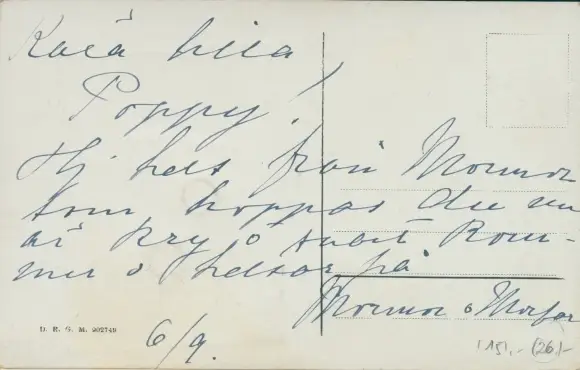 Kära lilla
Poppy!
Hj. hels från Mormor
som hoppas du nu
är kry o snart kom-
mer o helsar på
Mormor o Morfar
6/9.
D. R. G. M. 202749
151,- (26,-